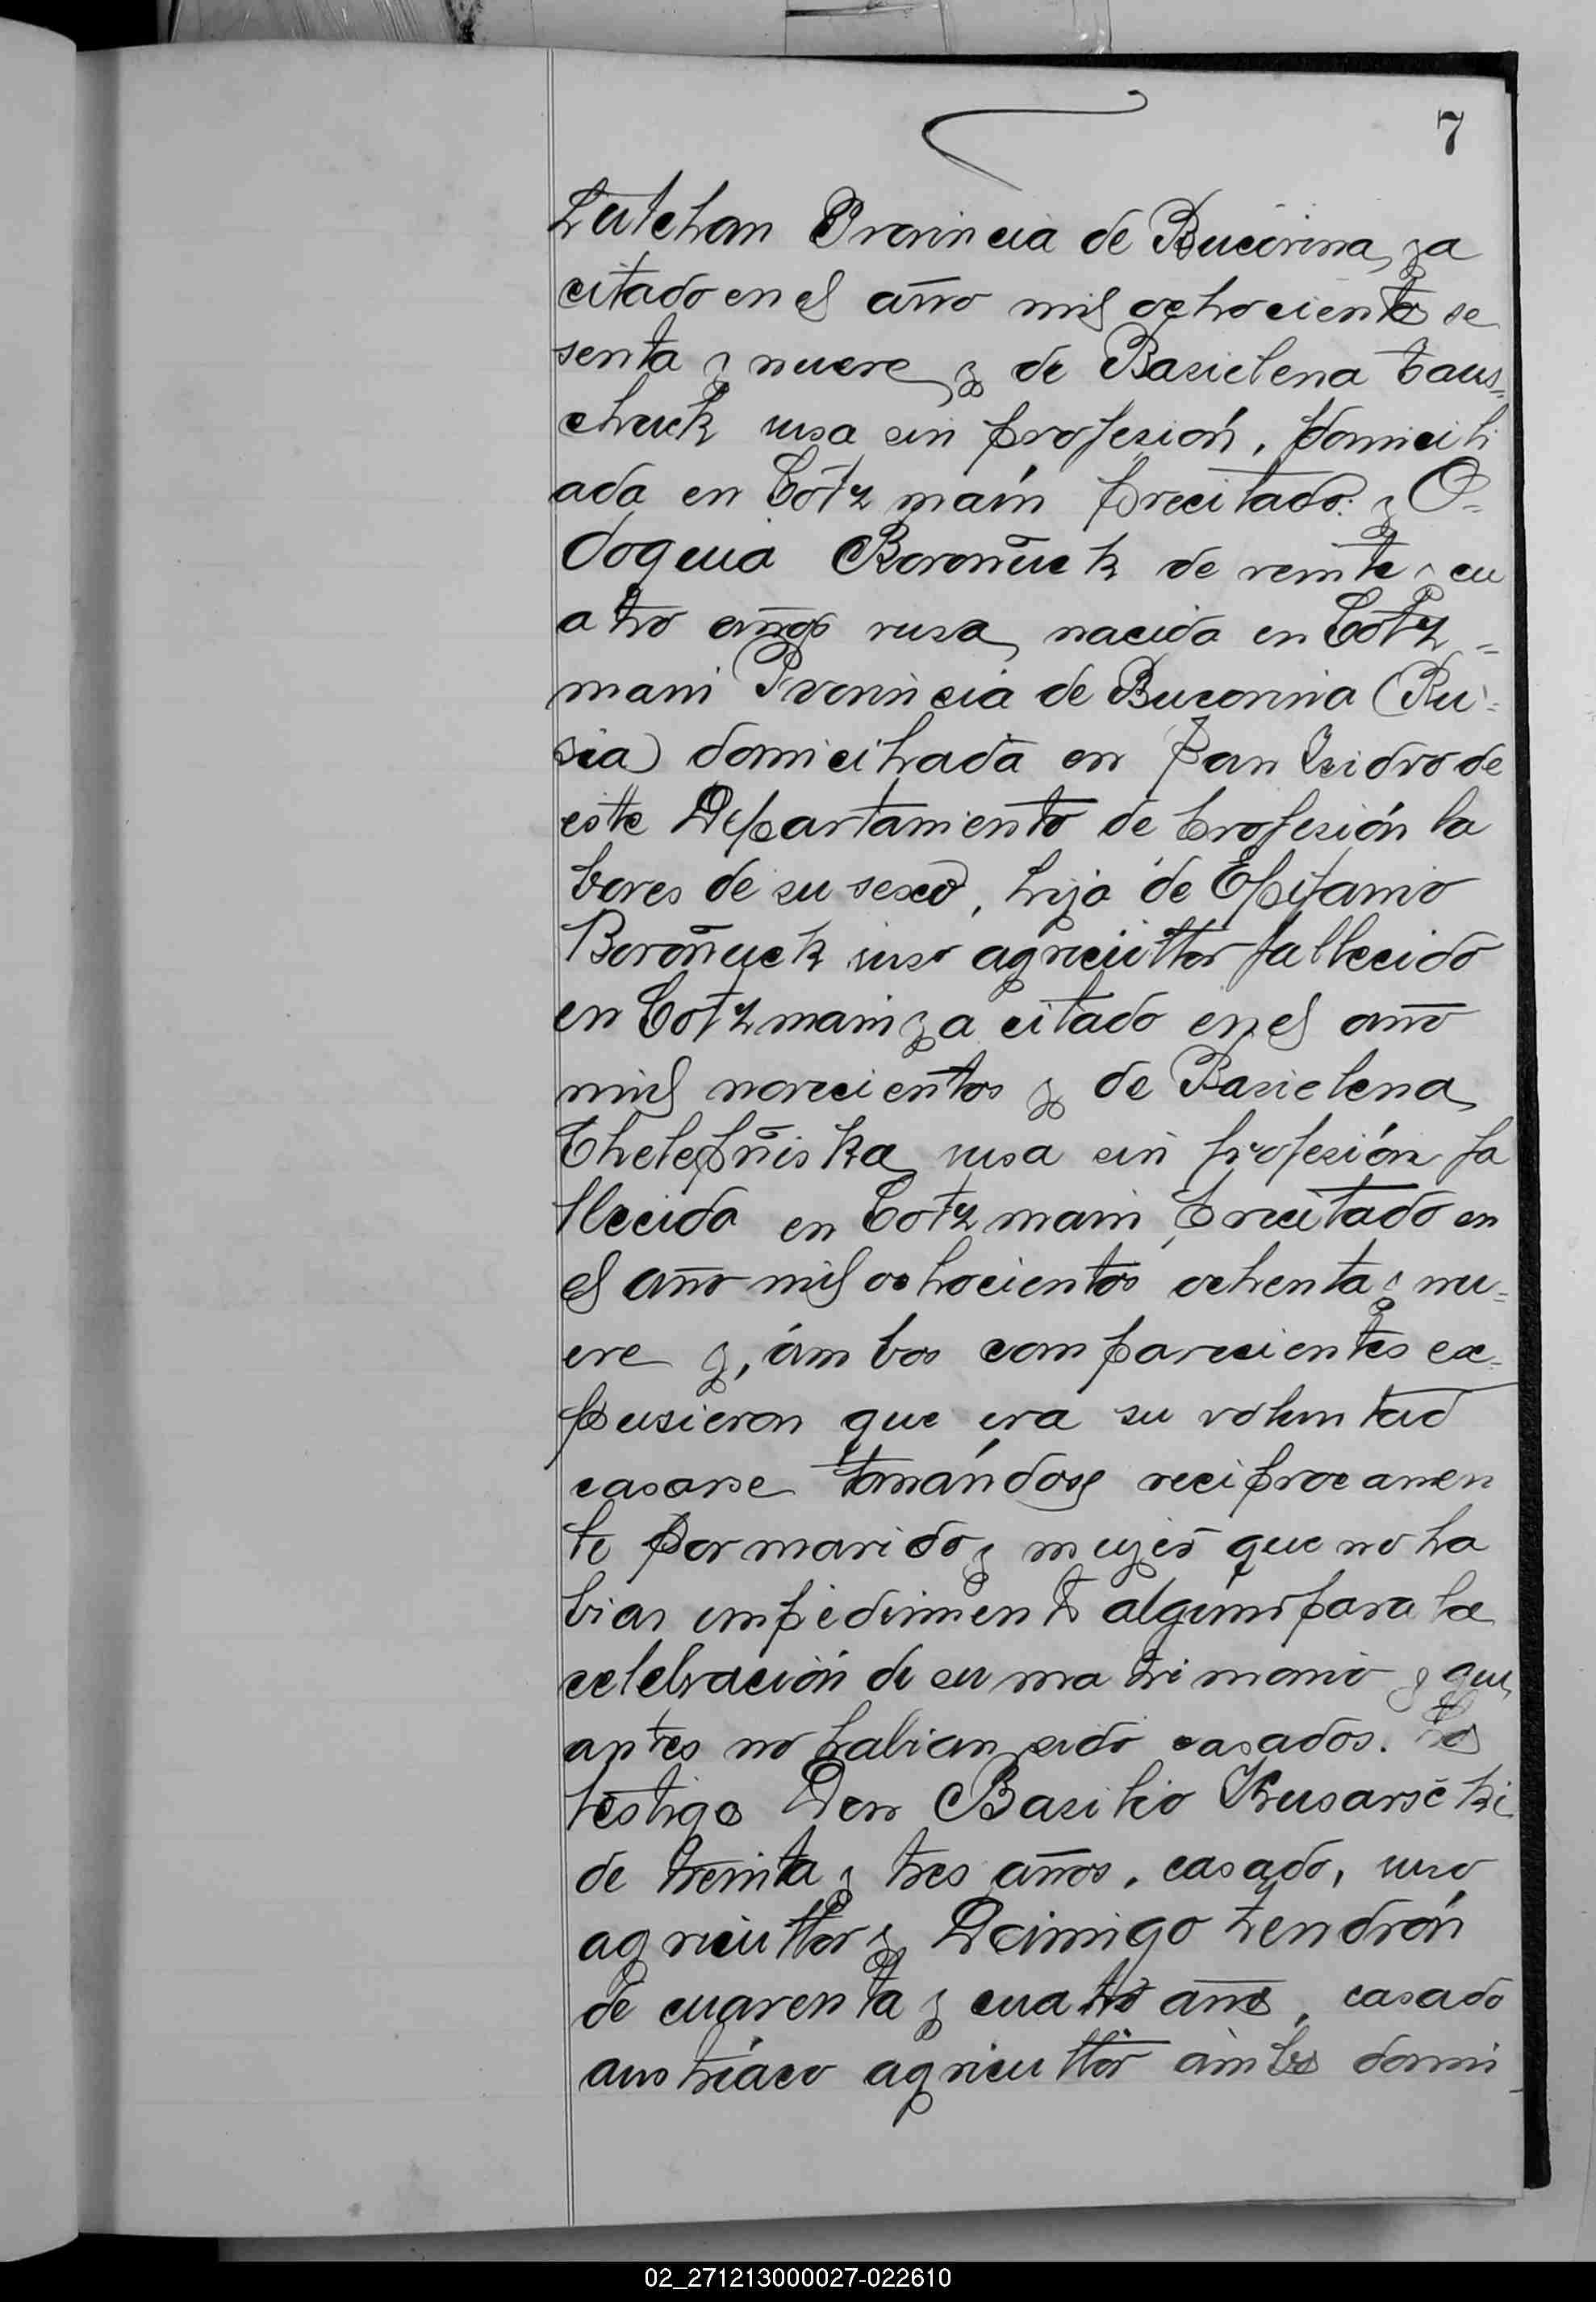 7
Lutchan Provincia de Bucovina, ya
citado en el año mil ochocientos se
senta y nueve y de Basielena Caus=
chuck rusa sin profesión, domicili
ada en Cotzmain precitado: y O=
doquia Boroñuck de veinte y cu
atro años rusa, nacida en Cotz=
mani Provincia de Bucovina (Ru=
sia) domiciliada en San Isidro de
este Departamento de profesión la
bores de su sexo, hija de Epifanio
Boroñuck ruso agricultor fallecido
en Cotzmani ya citado en el año
mil novecientos y de Basielena
Chelepñiska rusa sin profesión fa
llecida en Cotzmani precitado en
el año mil ochocientos ochenta y nu=
eve y, ámbos comparecientes ex=
pusieron que era su voluntad
casarse tomándose reciprocamen
te por marido y mujer que no ha
bian impedimento alguno para la
celebración de su matrimonio y que
antes no habian sido casados. Los
testigos Don Basilio Kusarscki
de treinta y tres años, casado, ruso
agricultor y Domingo Zendrón
de cuarenta y cuatro años, casado
austriáco agricultor ámbos domi
02_271213000027-022610